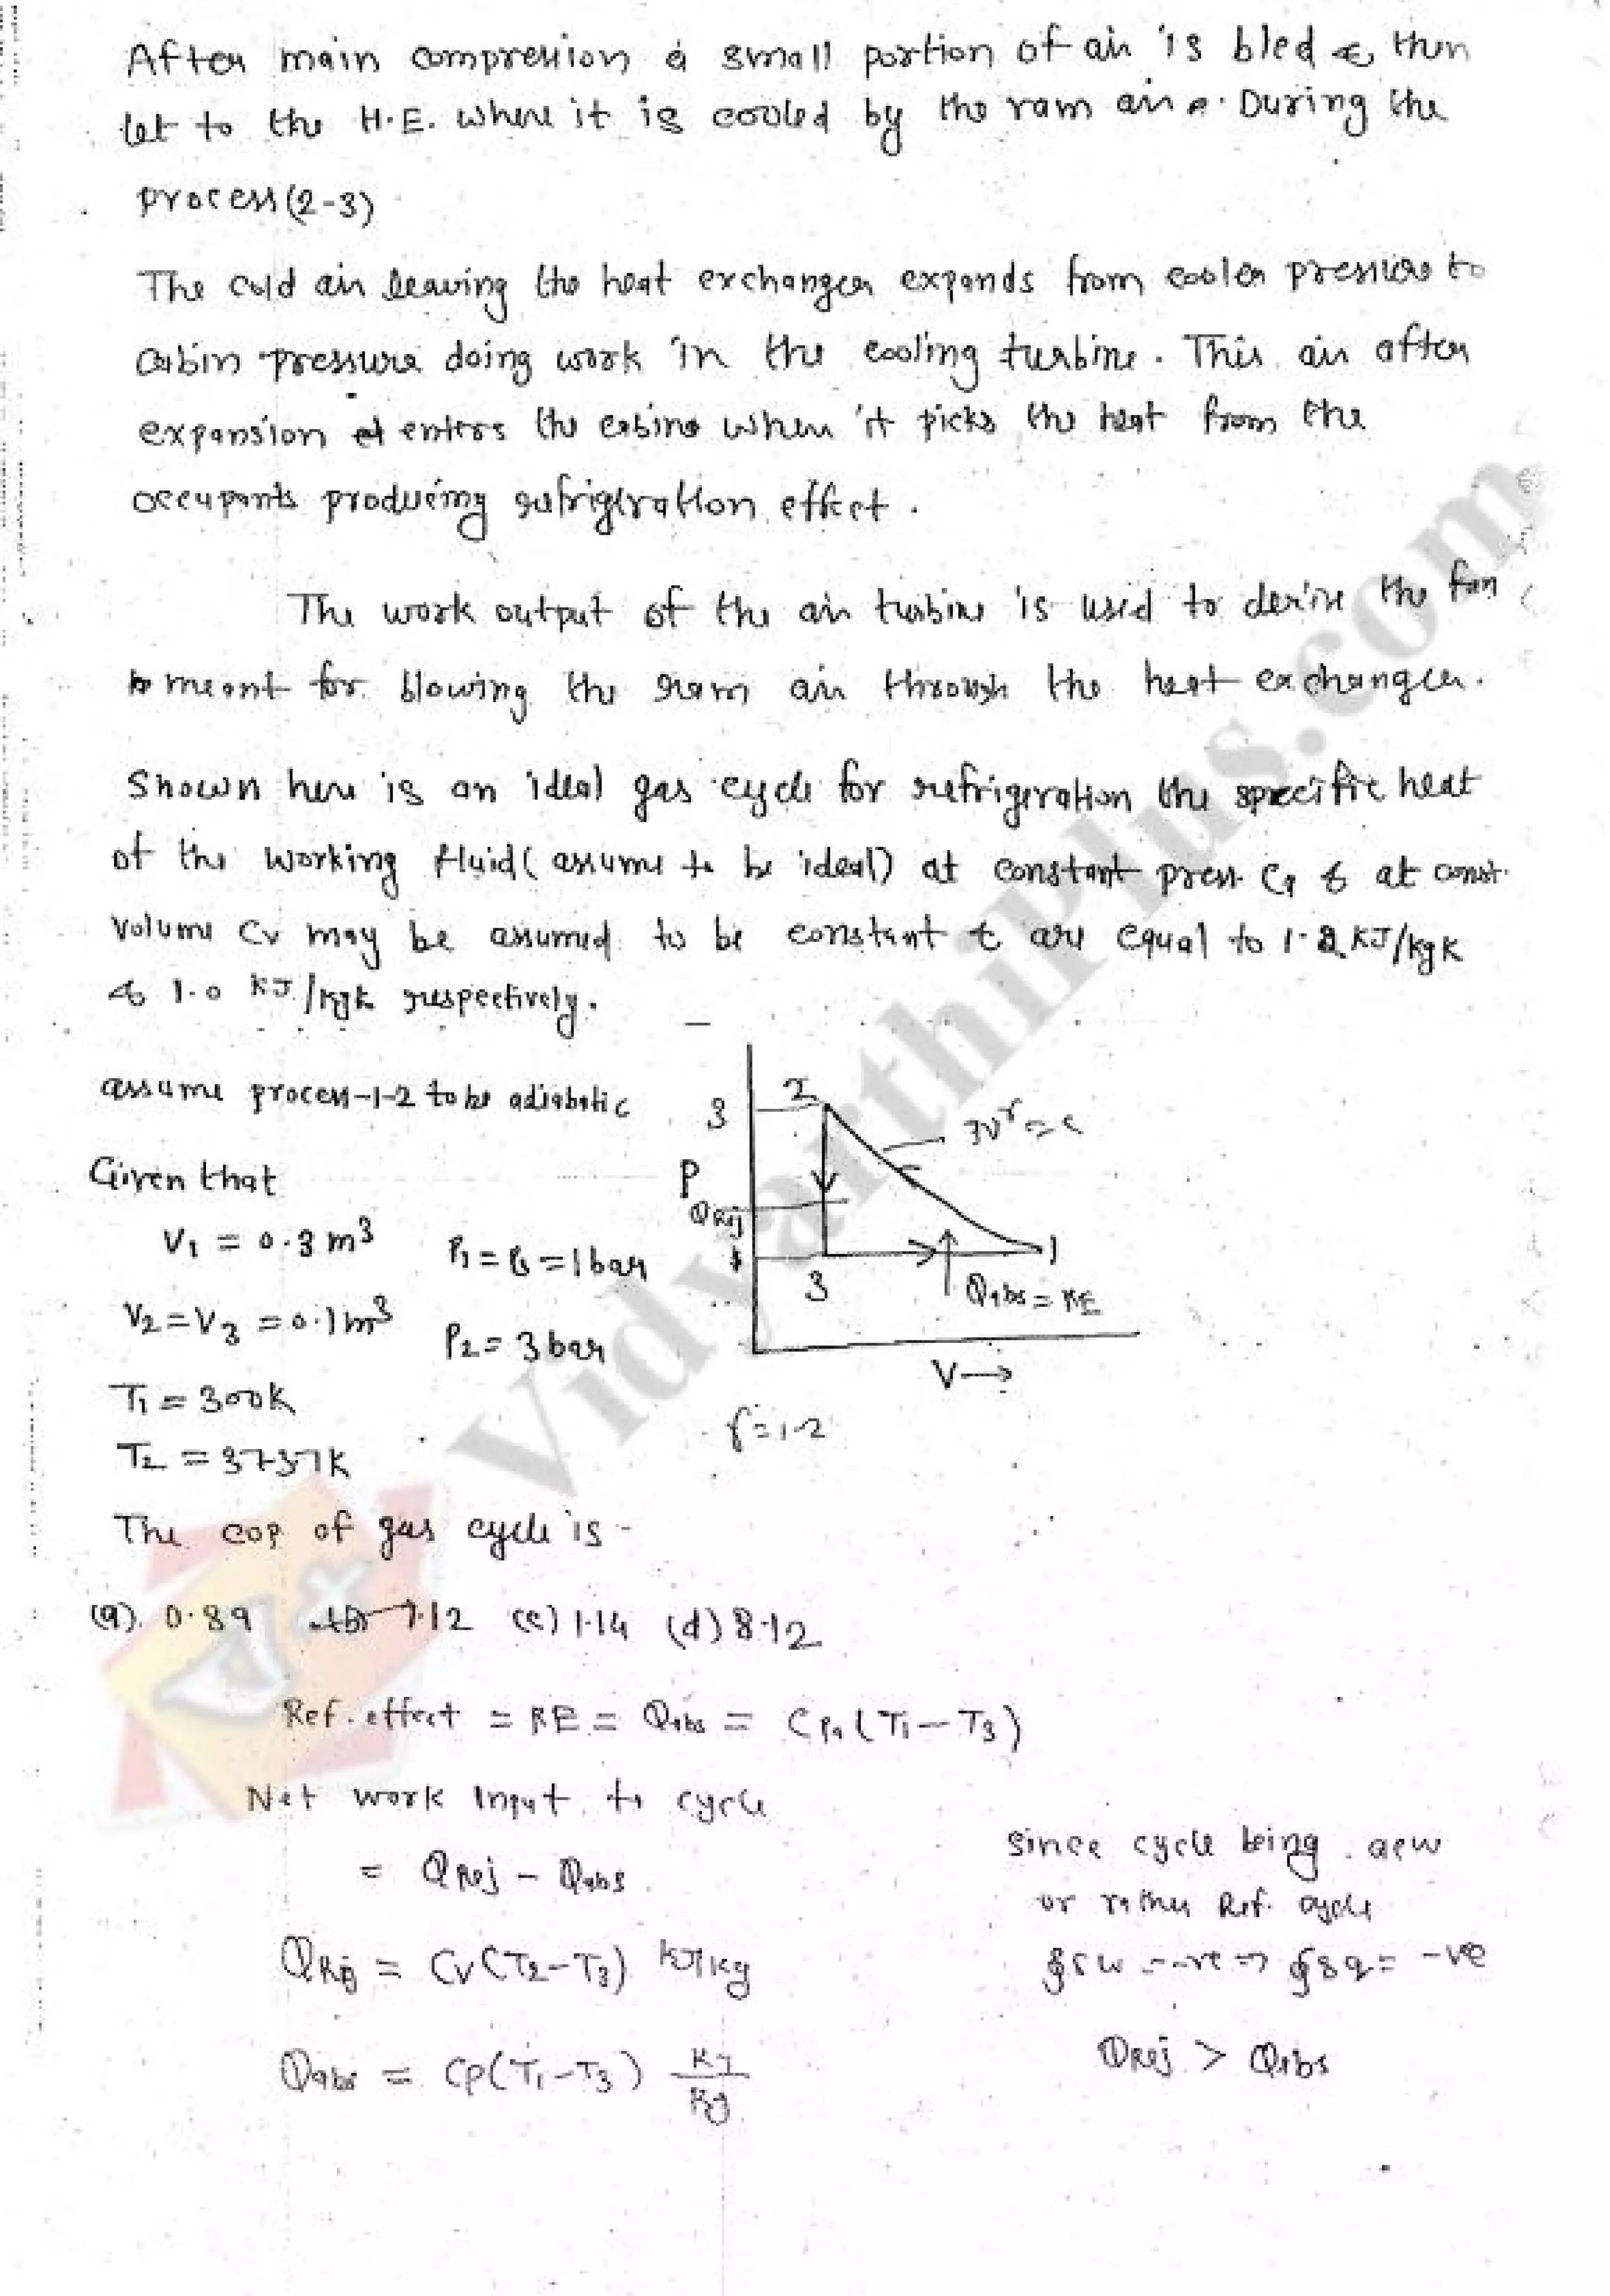 After main compression a small portion of air is bled & then
let to the H.E. where it is cooled by the ram air. During the
process (2-3)
The cold air leaving the heat exchanger expands from cooler pressure to
cabin pressure doing work in the cooling turbine. This air after
expansion enters the cabine when it picks the heat from the
occupants producing refrigeration effect.
The work output of the air turbine is used to derive the fan
meant for blowing the ram air through the heat exchanger.
Shown here is an ideal gas cycle for refrigeration the specific heat
of the working fluid (assume to be ideal) at constant press. Cp & at const.
volume Cv may be assumed to be constant & are equal to 1.2 KJ/kgK
& 1.0 KJ/kgk respectively.
assume process-1-2 to be adiabatic
Given that
V1 = 0.3 m³
P1 = P3 = 1 bar
V2 = V3 = 0.1 m³
P2 = 3 bar
T1 = 300K
T2 =
3
2
P
QRej
3
1
Qabs = RE
V→
γ = 1.2
The COP of gas cycle is -
(a). 0.89 7.12 (c) 1.14 (d) 8.12
Ref. effect = RE = Qabs = Cpa (T1 - T3)
Net work Input to cycle
= QRej - Qabs
Since cycle being acw
or rather Ref. cycle
∮δw = -ve ⇒ ∮δq = -ve
QRej = Cv (T2 - T3) KJ/kg
QRej > Qabs
Qabs = Cp (T1 - T3) KJ/Kg
VidyarthiPlus.com